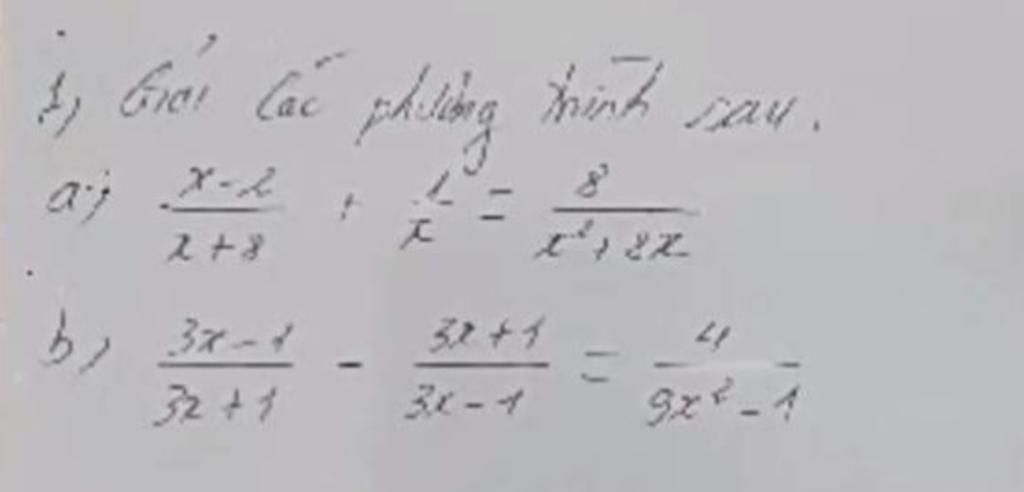 1, Giải các phương trình sau.
a, \frac{x-2}{x+8} + \frac{1}{x} = \frac{8}{x^2+8x}
b, \frac{3x-1}{3x+1} - \frac{3x+1}{3x-1} = \frac{4}{9x^2-1}